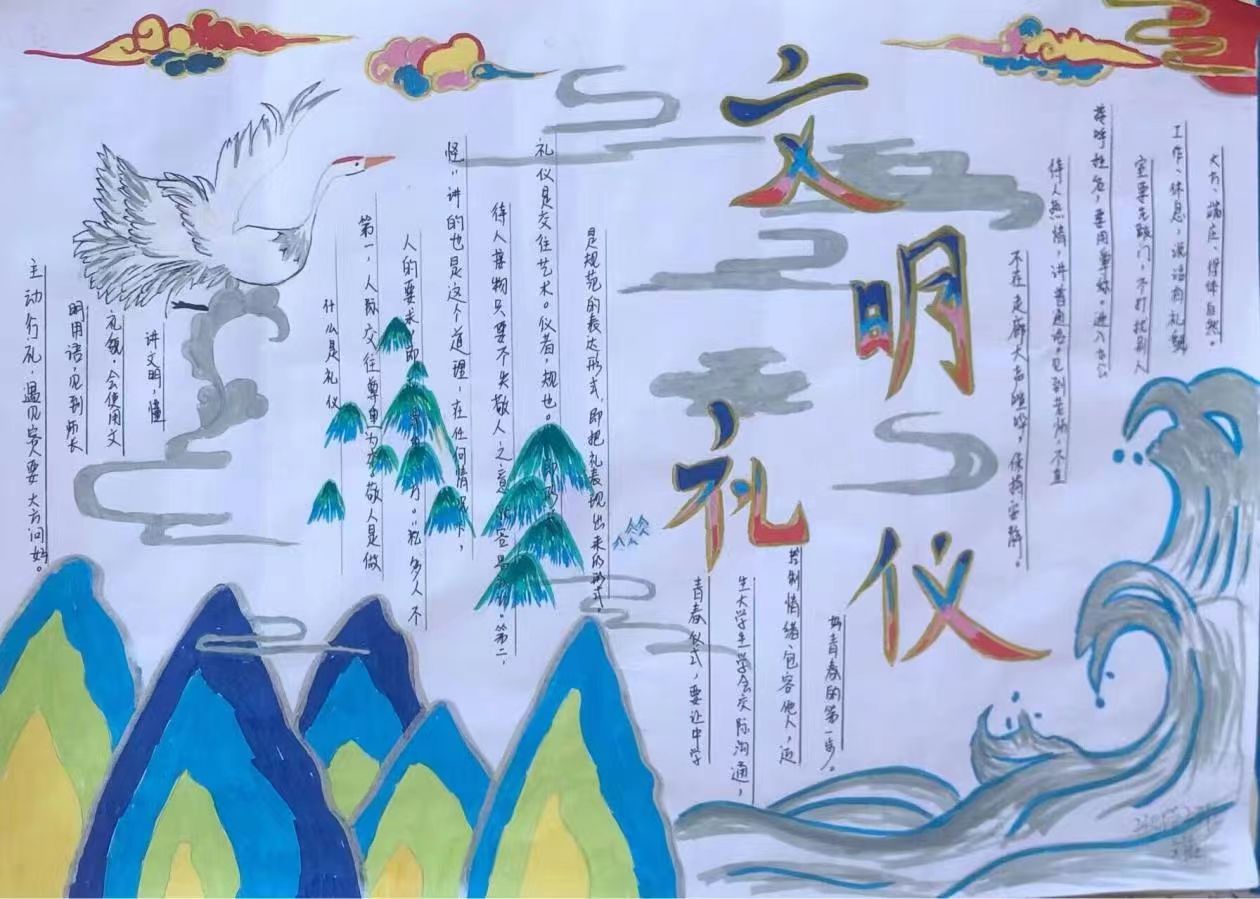 文明
礼仪
讲文明，懂
礼貌，会使用文
明用语，见到师长
主动行礼，遇见客人要大方问好。
什么是礼仪
第一，人际交往尊卑为本，敬人是做
人的要求，即。"礼多人不
怪"讲的也是这个道理，在任何情况下，
待人接物只要不失敬人之意。第二，
礼仪是交往艺术。仪者，规也。即
是规范的表达形式，即把礼表现出来的形式。
青春仪式，要让中学
生大学生学会交际沟通，
控制情绪，包容他人，迈
好青春的第一步。
不在走廊大声喧哗，保持安静。
待人热情，讲普通话，见到老师，不直
呼姓名，要用尊称。进入办公
室要先敲门，不打扰别人
工作、休息，说话有礼貌
大方、端庄、得体自然。